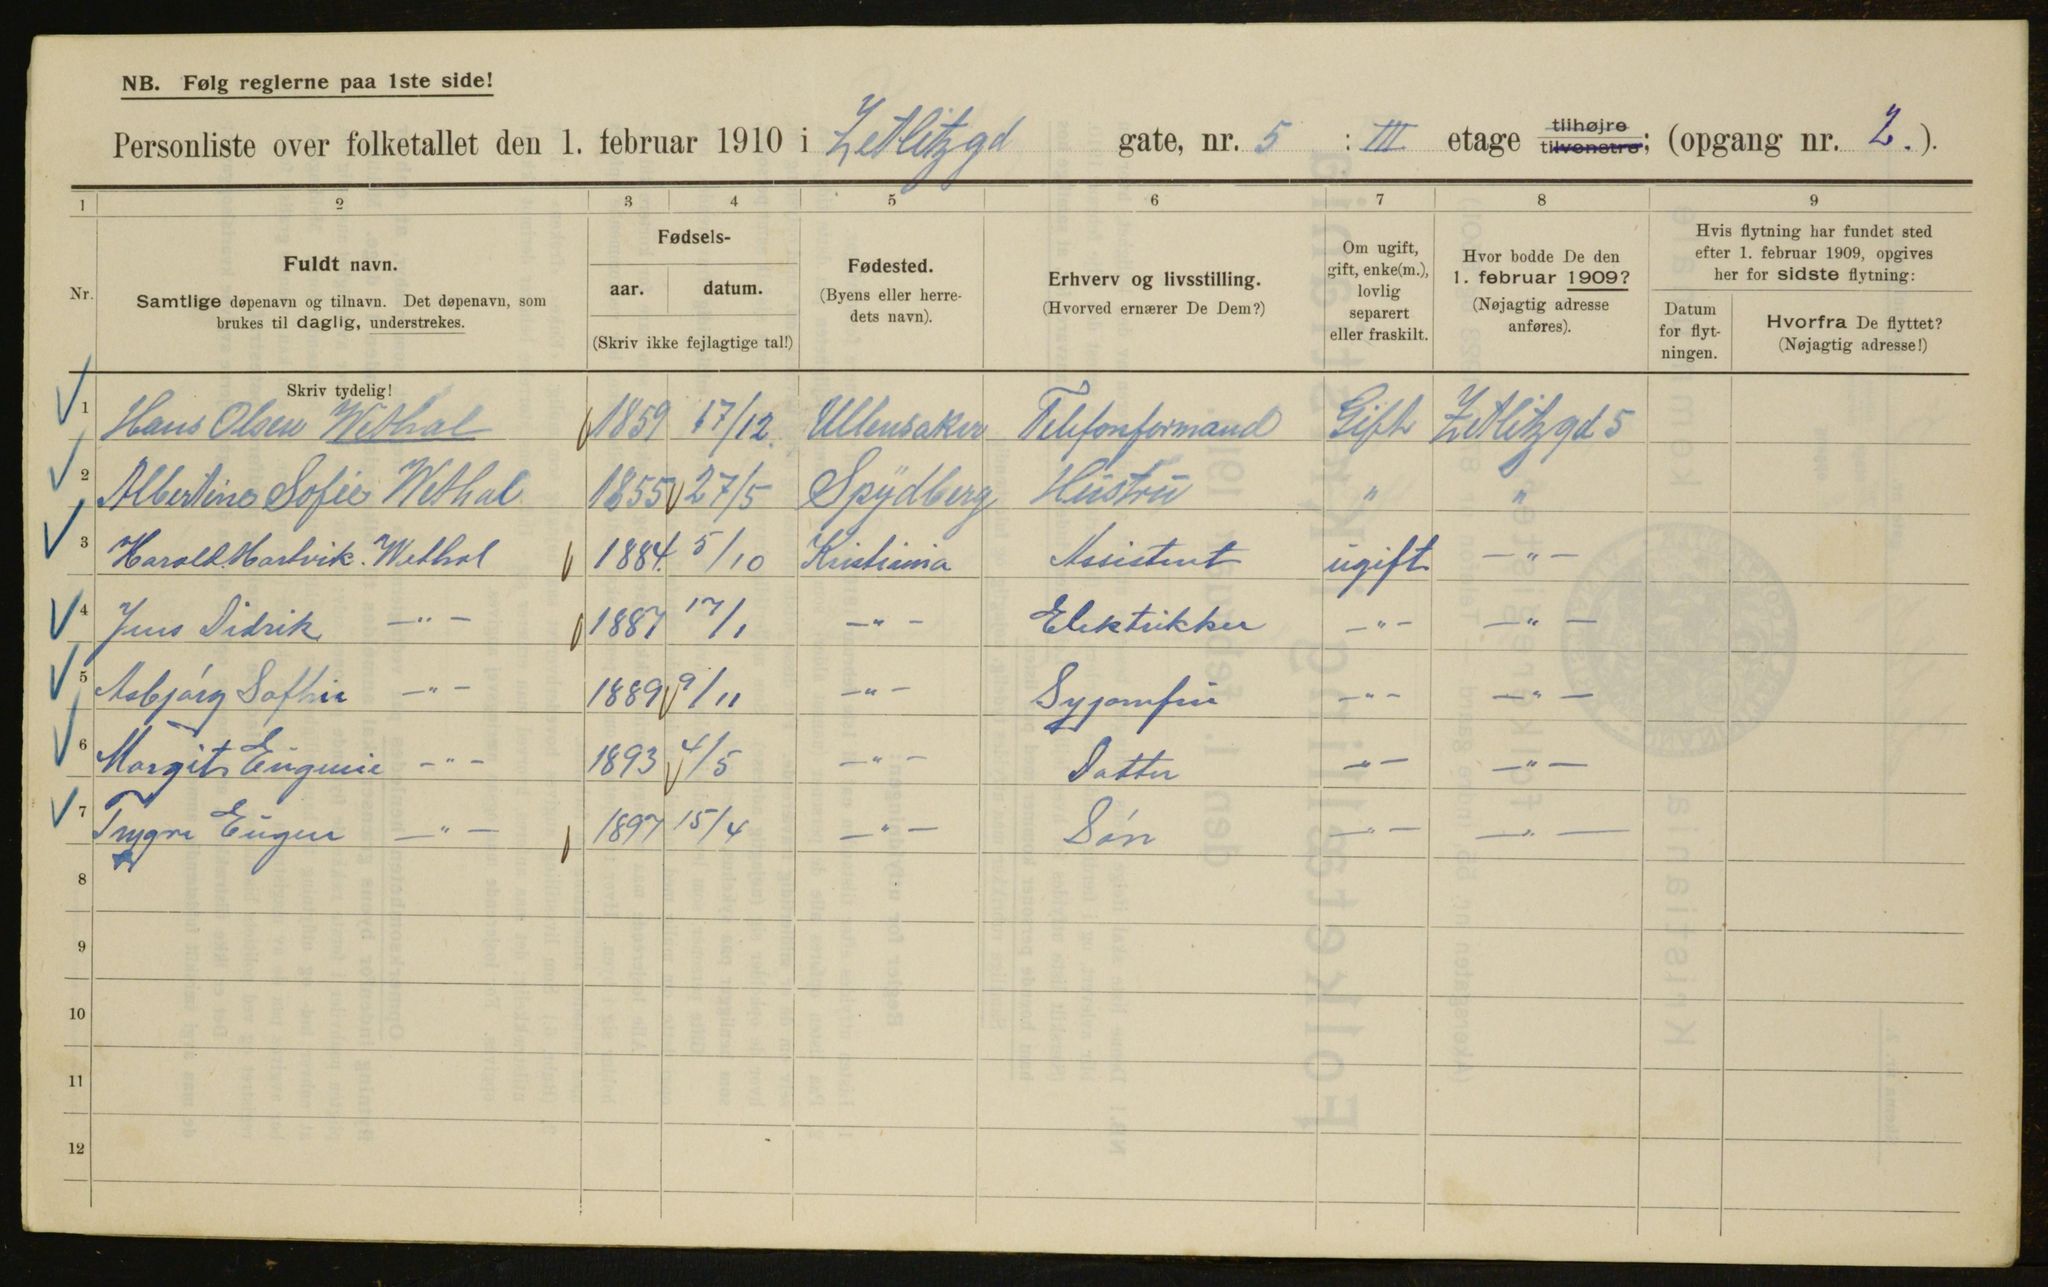 NB. Følg reglerne paa 1ste side!
Personliste over folketallet den 1. februar 1910 i Zetlitzgd gate, nr. 5 : III etage tilhøjre tilvenstre; (opgang nr. 2.).
1 2 3 4 5 6 7 8 9
Nr.
Fuldt navn.
Samtlige døpenavn og tilnavn. Det døpenavn, som
brukes til daglig, understrekes.
Skriv tydelig!
Fødsels-
aar. datum.
(Skriv ikke fejlagtige tal!)
Fødested.
(Byens eller herre-
dets navn).
Erhverv og livsstilling.
(Hvorved ernærer De Dem?)
Om ugift,
gift, enke(m.),
lovlig
separert
eller fraskilt.
Hvor bodde De den
1. februar 1909?
(Nøjagtig adresse
anføres).
Hvis flytning har fundet sted
efter 1. februar 1909, opgives
her for sidste flytning:
Datum
for flyt-
ningen.
Hvorfra De flyttet?
(Nøjagtig adresse!)
1 Hans Olsen Wethal 1859 17/12 Ullensaker Telefonformand Gift Zetlitzgd 5
2 Albertine Sofie Wethal 1855 27/5 Spydberg Hustru " "
3 Harald Hartvik Wethal 1884 5/10 Kristiania Assistent ugift — " —
4 Jens Didrik — " — 1887 17/1 — " — Elektrikker — " — — " —
5 Asbjørg Sofhie — " — 1889 9/11 — " — Syjomfru — " — — " —
6 Margit Eugenie — " — 1893 4/5 — " — Datter — " — — " —
7 Trygve Eugen — " — 1897 15/4 — " — Søn — " — — " —
8
9
10
11
12